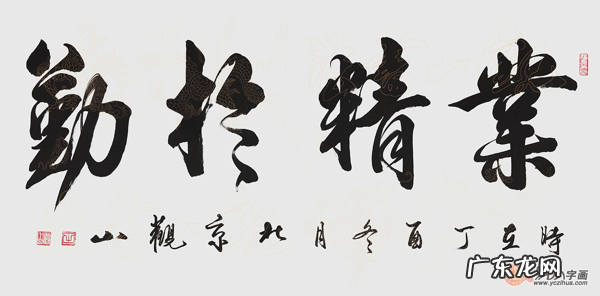 業精於勤
時在丁酉冬月北京觀山
字画
www.yczihua.com
广东龙网